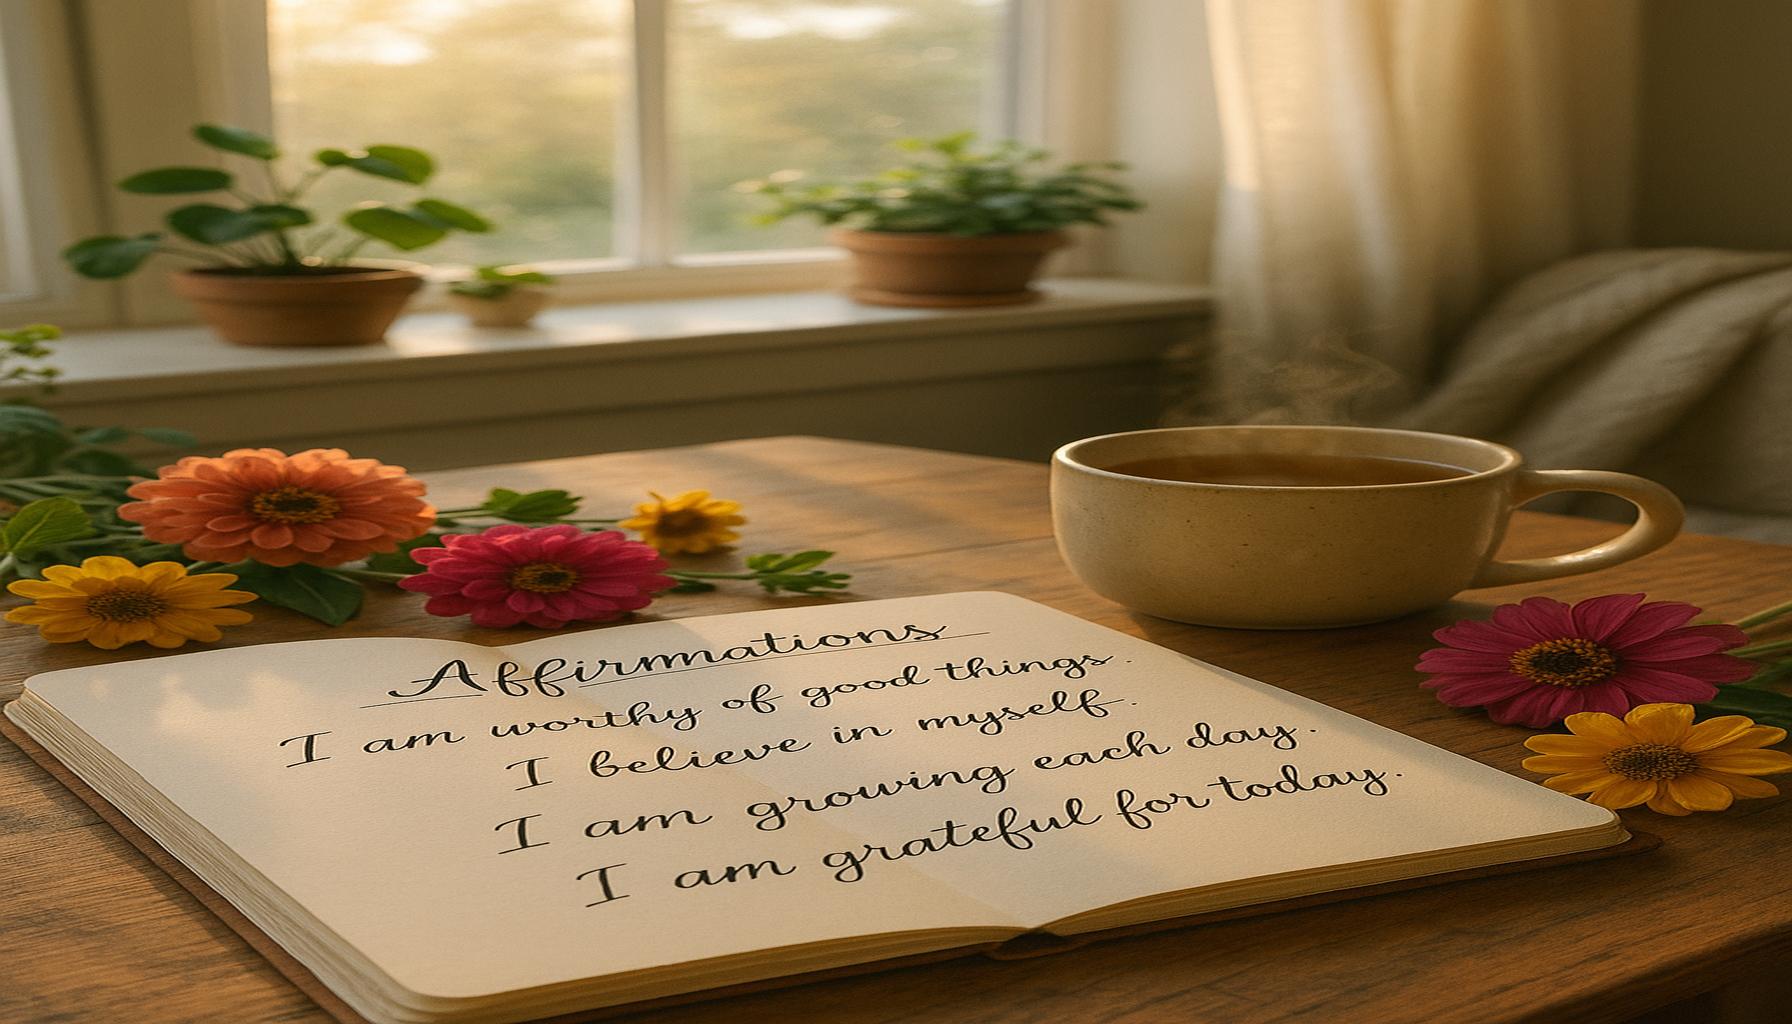 Affirmations
I am worthy of good things.
I believe in myself.
I am growing each day.
I am grateful for today.